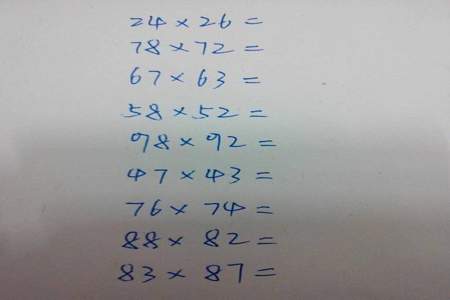 24×26=
78×72=
67×63=
58×52=
98×92=
47×43=
76×74=
88×82=
83×87=